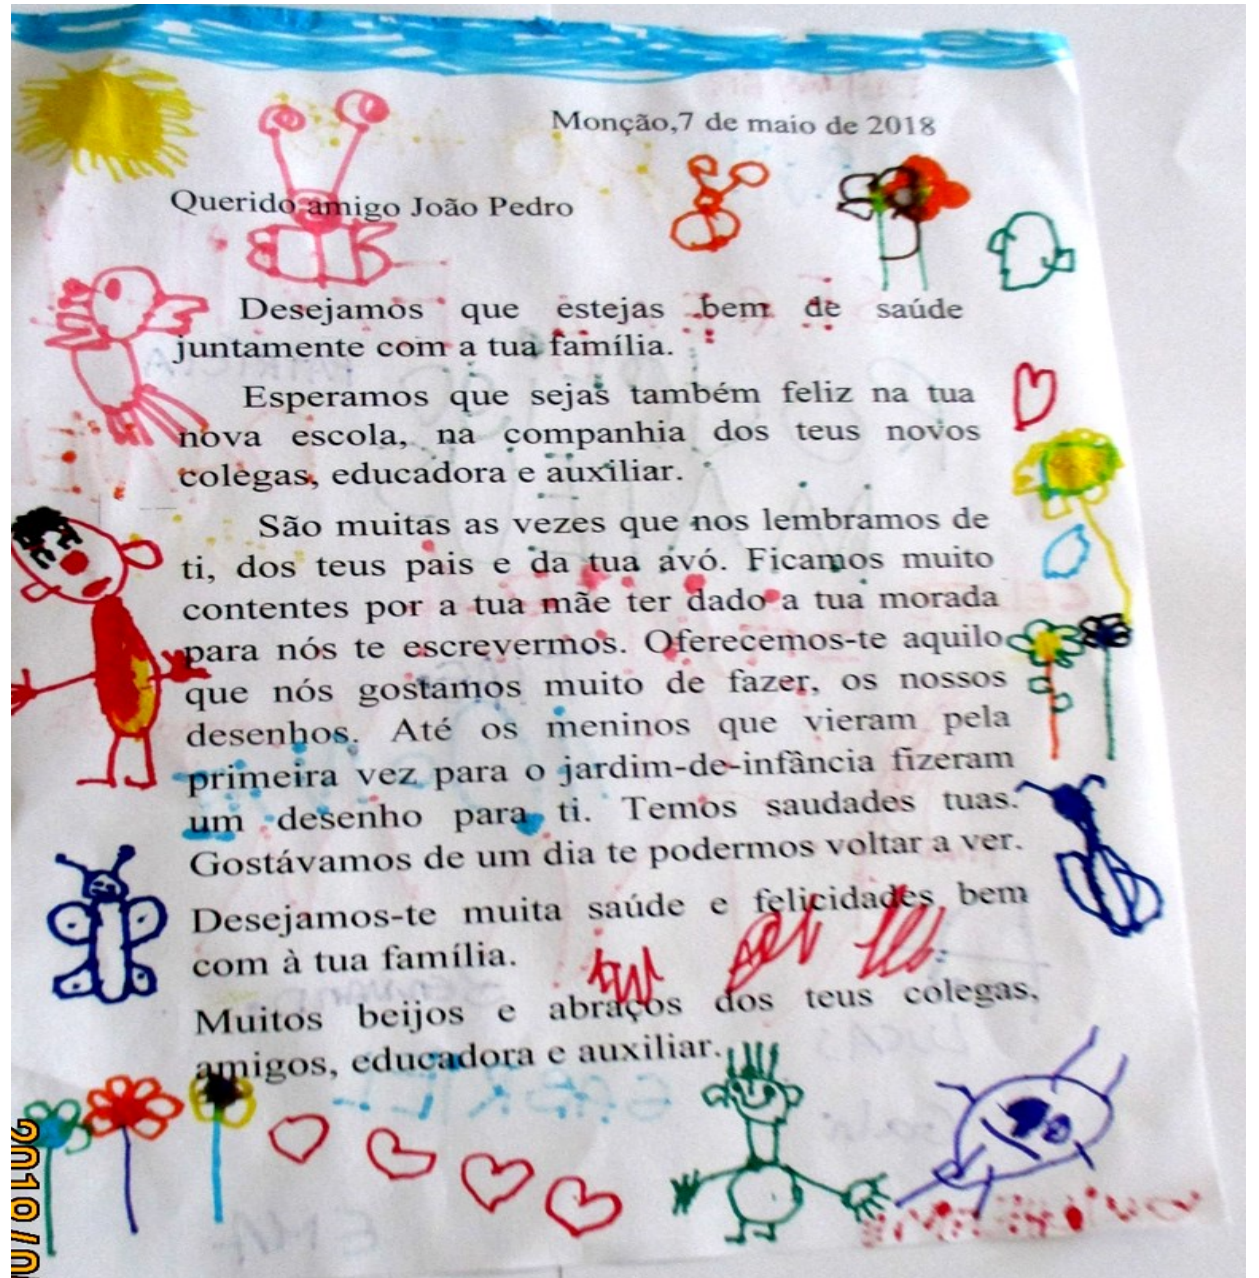 Monção,7 de maio de 2018
Querido amigo João Pedro
Desejamos que estejas bem de saúde
juntamente com a tua família.
Esperamos que sejas também feliz na tua
nova escola, na companhia dos teus novos
colegas, educadora e auxiliar.
São muitas as vezes que nos lembramos de
ti, dos teus pais e da tua avó. Ficamos muito
contentes por a tua mãe ter dado a tua morada
para nós te escrevermos. Oferecemos-te aquilo
que nós gostamos muito de fazer, os nossos
desenhos. Até os meninos que vieram pela
primeira vez para o jardim-de-infância fizeram
um desenho para ti. Temos saudades tuas.
Gostávamos de um dia te podermos voltar a ver.
Desejamos-te muita saúde e felicidades bem
com à tua família.
Muitos beijos e abraços dos teus colegas,
amigos, educadora e auxiliar.
GABRIEL
LUCAS
EMA